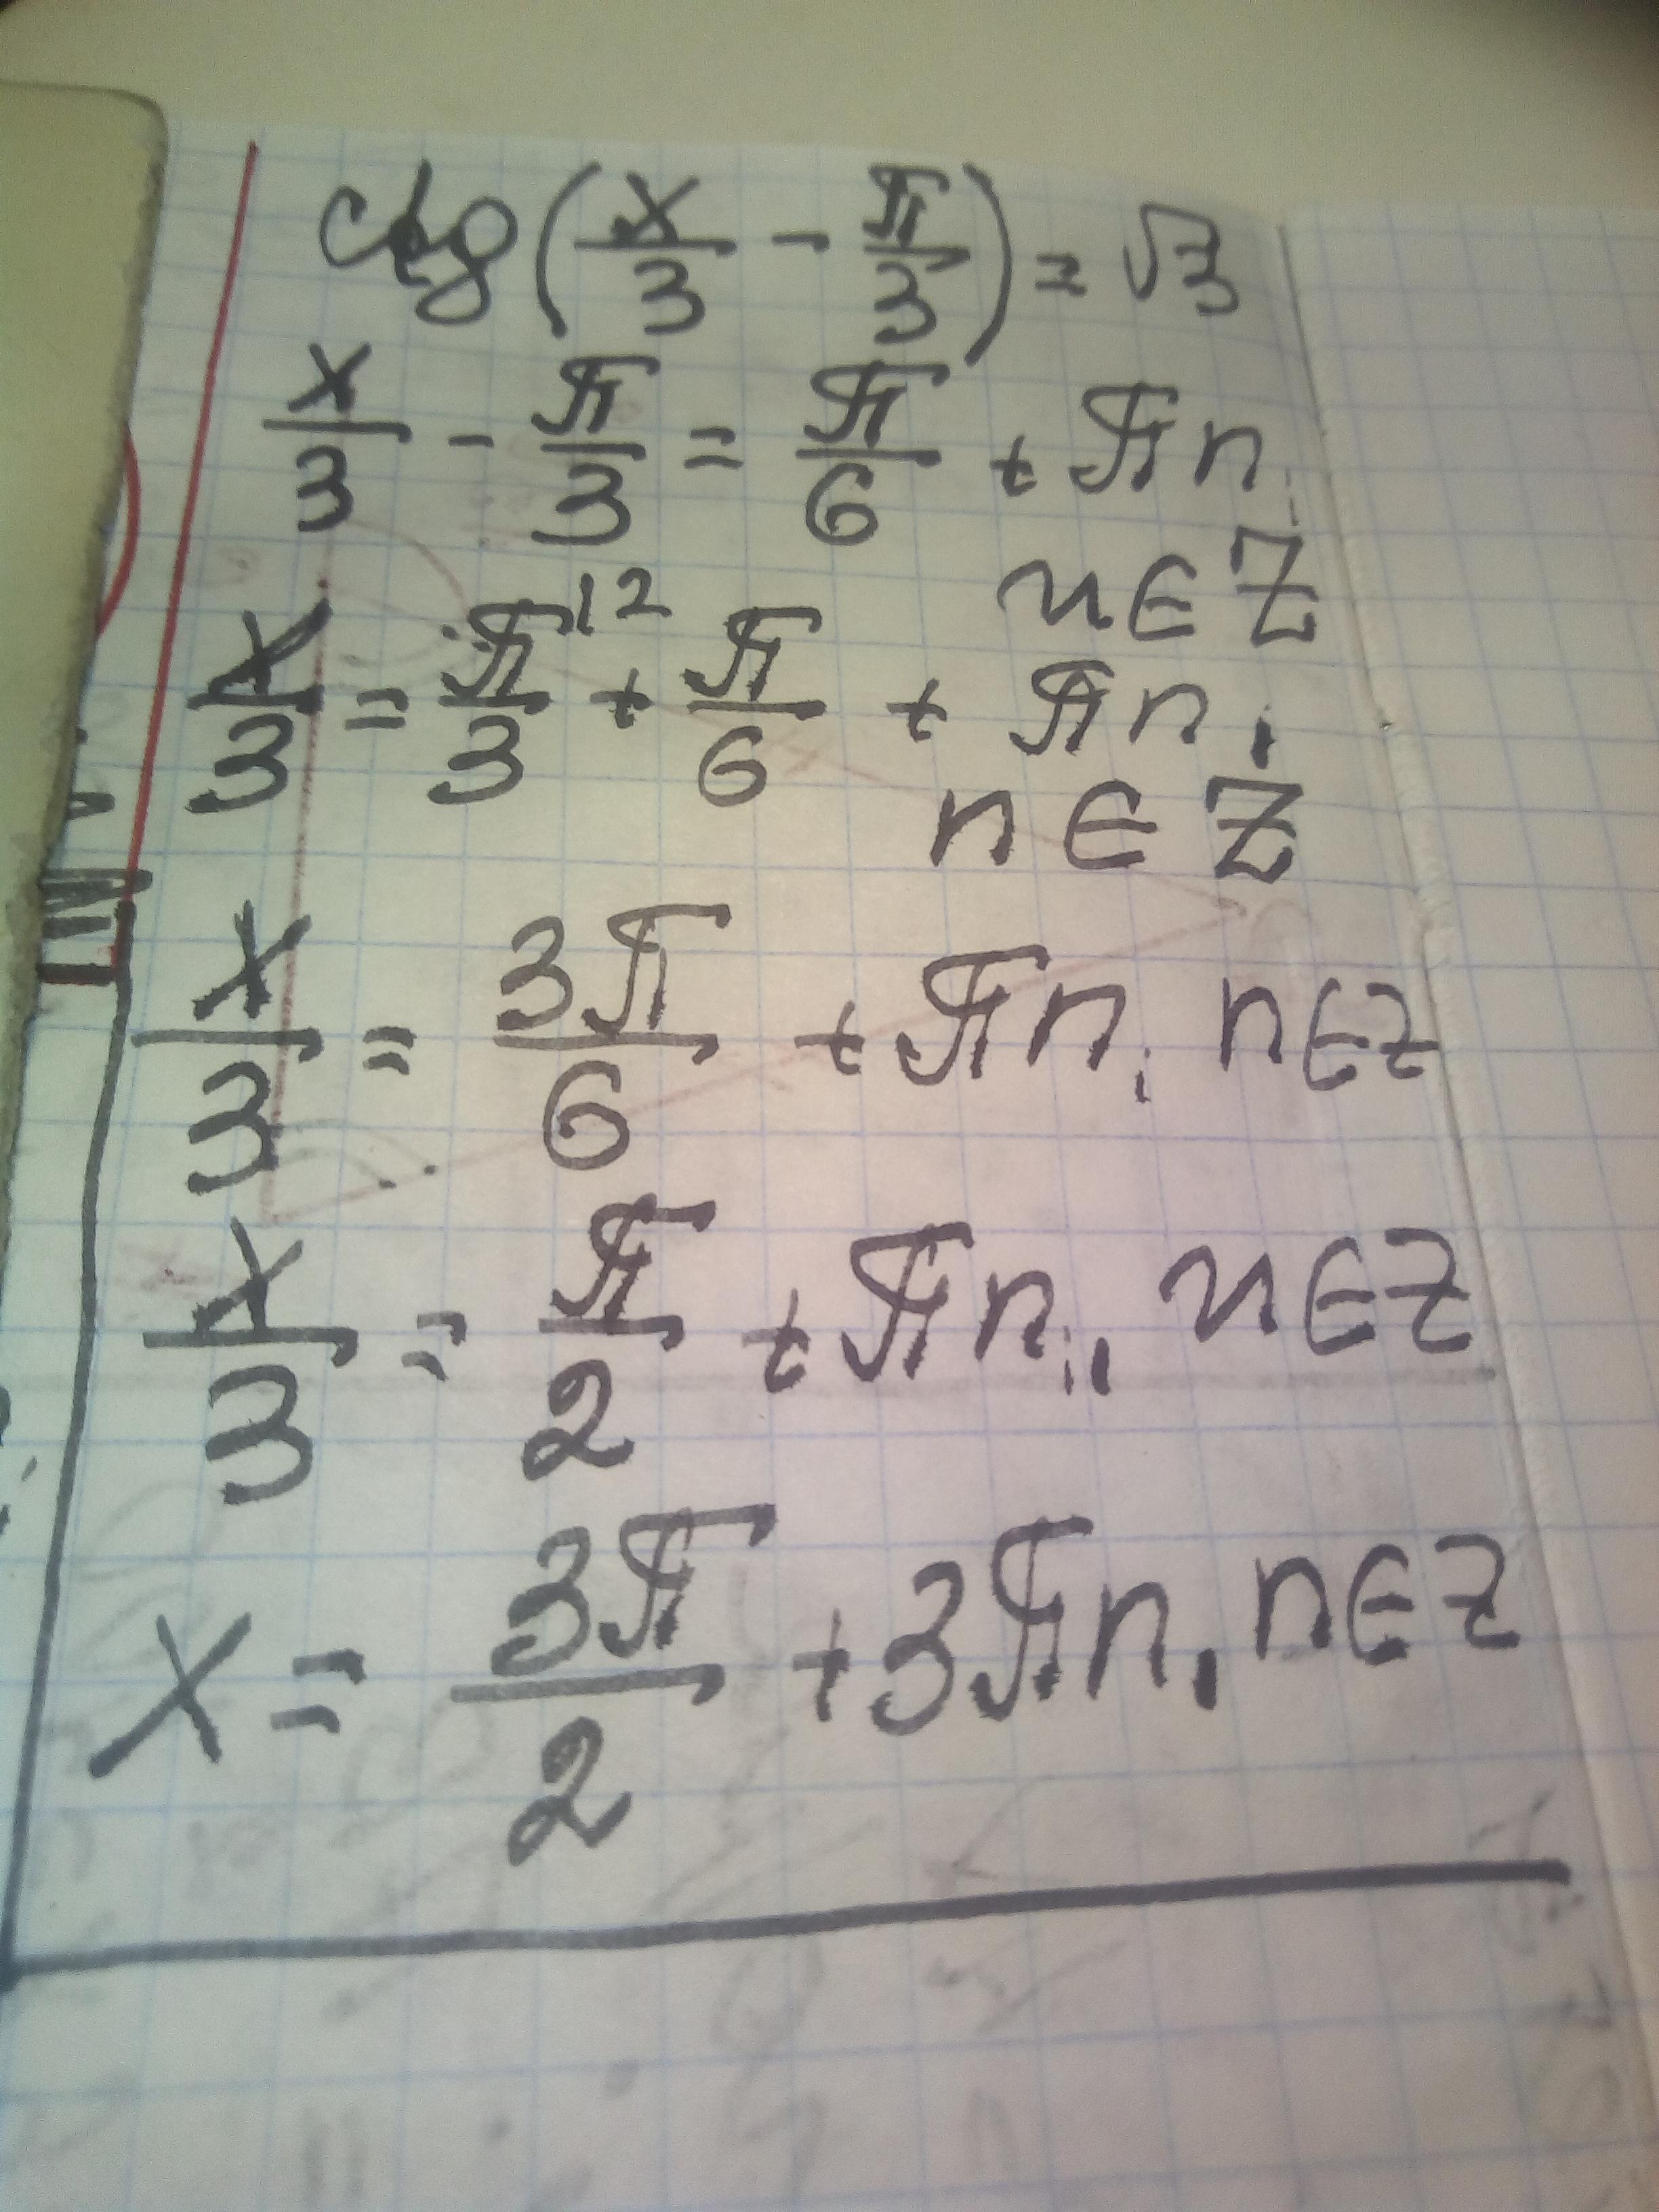 ctg(x/3 - π/3) = √3
x/3 - π/3 = π/6 + πn,
n∈Z
x/3 = π/3^12 + π/6 + πn,
n∈Z
x/3 = 3π/6 + πn, n∈Z
x/3 = π/2 + πn, n∈Z
x = 3π/2 + 3πn, n∈Z